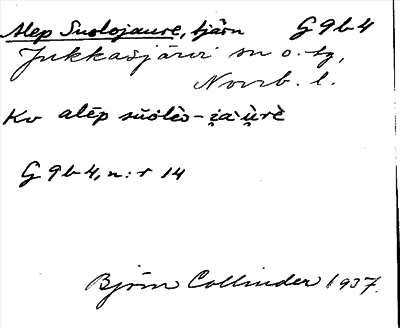 Alep Suolojaure, tjärn G 9 b 4
Jukkasjärvi sn o. tg,
Norrb. l.
Kv alēp sŭŏlȯ̀-i̯a·u̯rè
G 9 b 4, n:r 14
Björn Collinder 1937.